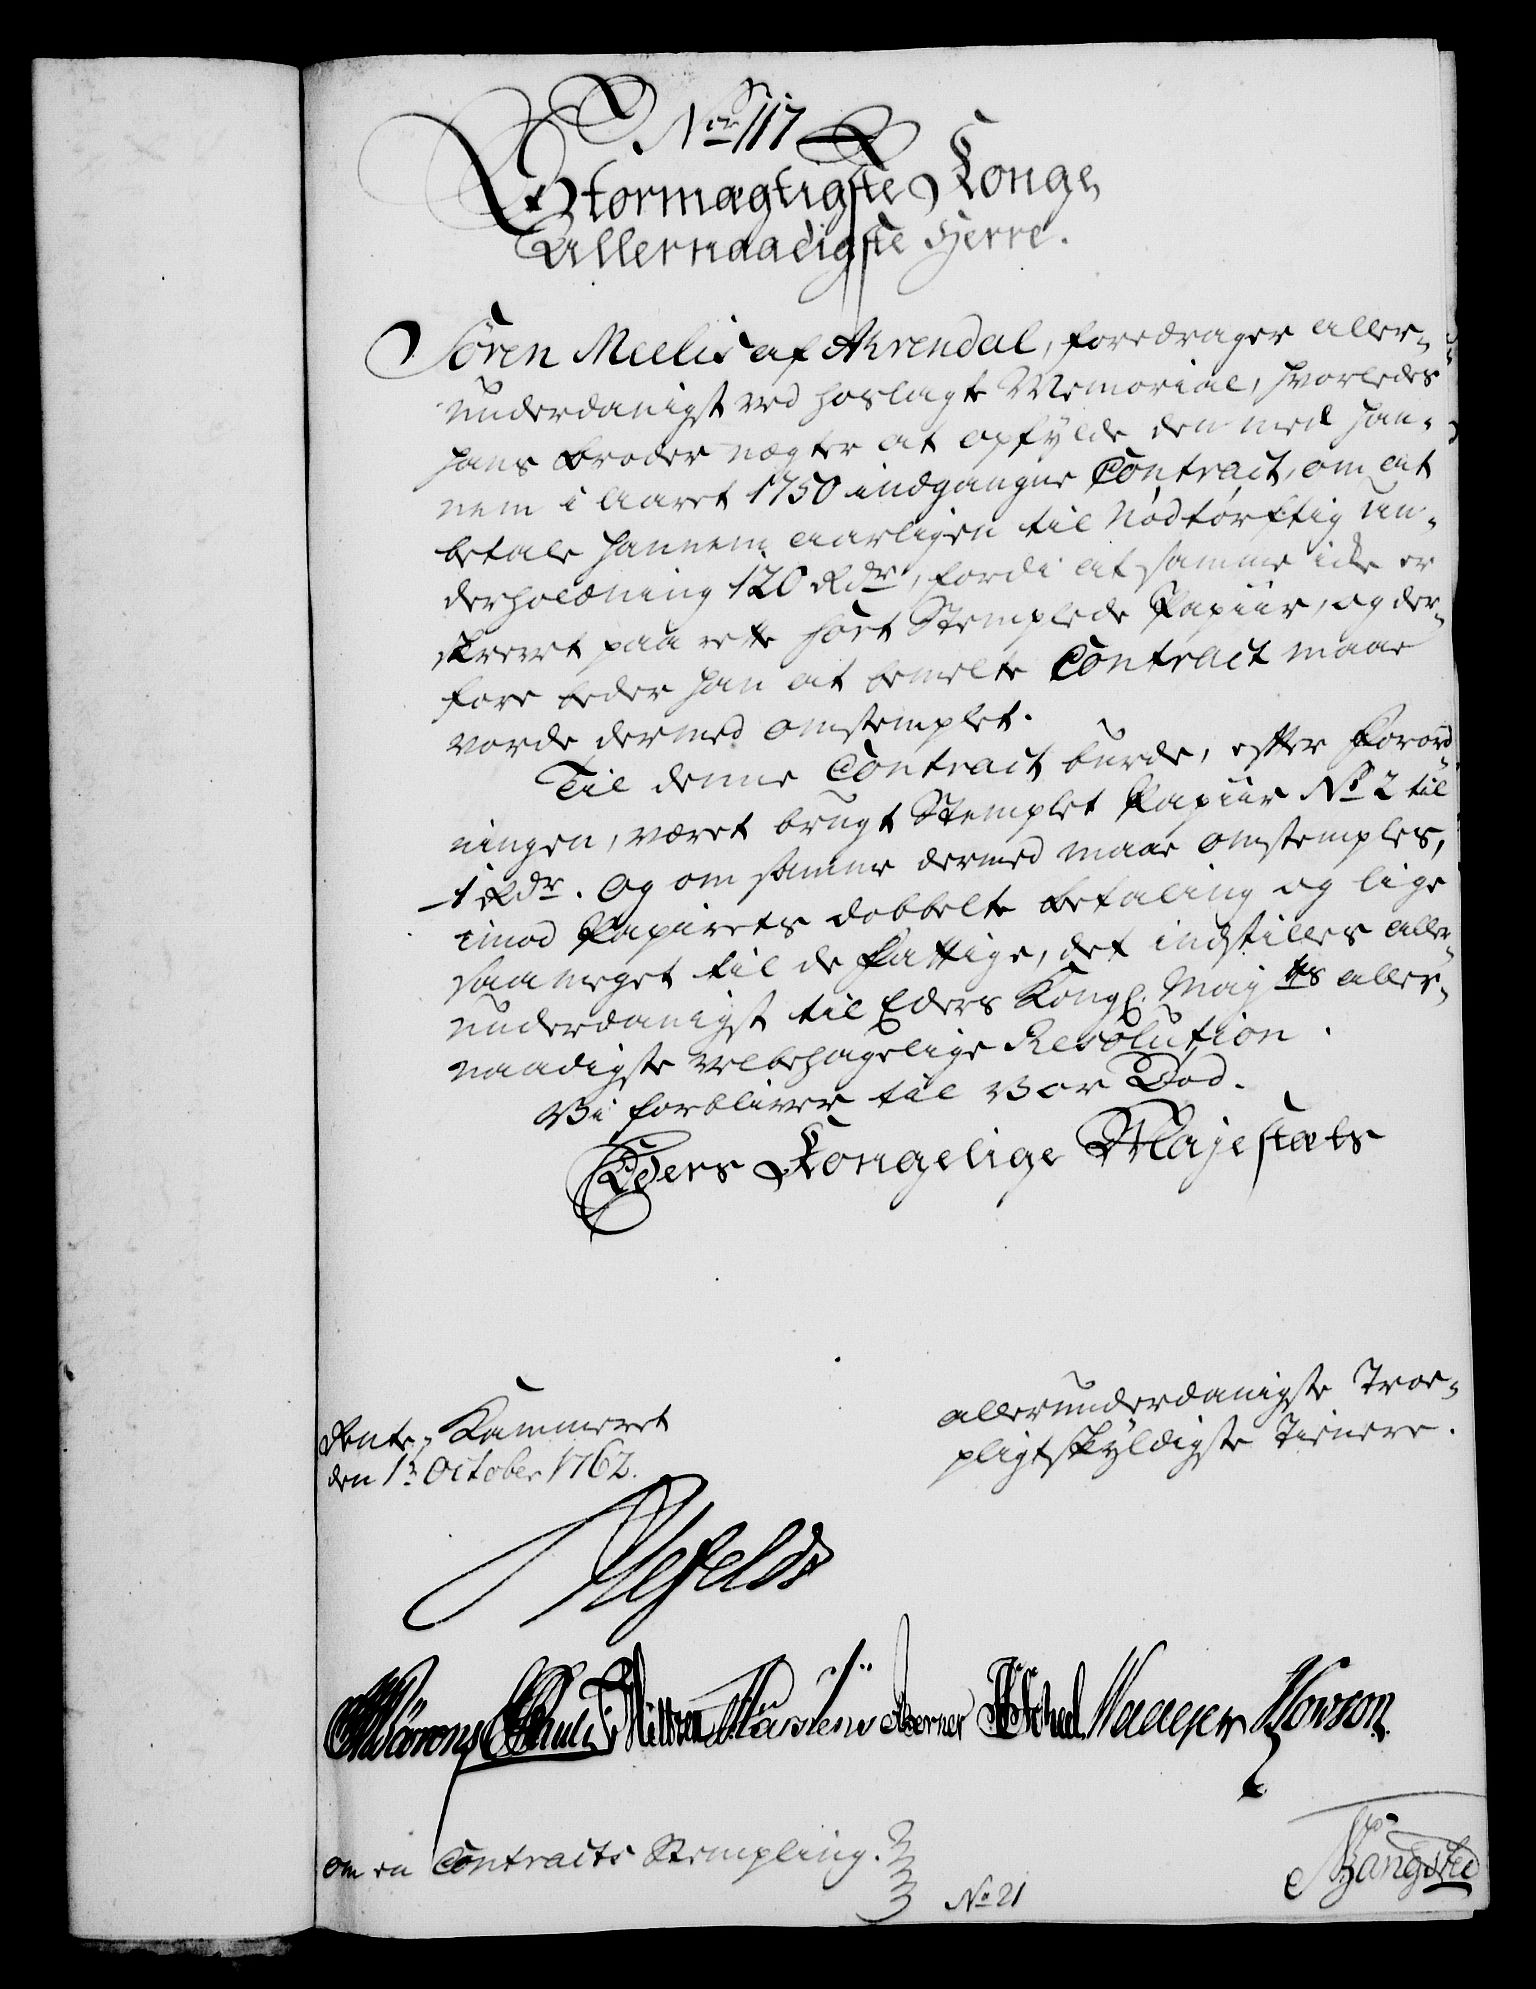 No 117
Stormægtigste Konge,
Allernaadigste Herre.
Sören Meelis af Ahrendal, foredrager aller-
underdanigst ved hoslagte Memorial, hvorledes
hans Broder nægter at opfylde den med han-
nem i Aaret 1750 indgangne Contract, om at
betale hannem aarligen til Nödtörftig Un-
derholdning 120 Rdr, fordi at samme icke er
skrevet paa rette sort Stemplede Papiir, og der-
fore beder han at bemelte Contract maae
vorde dermed omstemplet.
Til denne Contract burde, efter Forord
ningen, været brugt Stemplet Papiir No 2 til
1 Rdr. Og om samme dermed maae omstemples,
imod Papirets dobbelte Betaling og lige
saa meget til de Fattige, det indstilles aller-
underdanigst til Eders Kongl. Mayts aller-
naadigste velbehagelige Resolution.
Vi forbliver til Vor Död.
Eders Kongelige Majestæts
allerunderdanigste Troe-
pligtskyldigste Tienere.
Rente-Kammeret
den 1ten October 1762.
Ahlefeldt
Möller
Bangsted
om en Contracts Stempling.
No 21